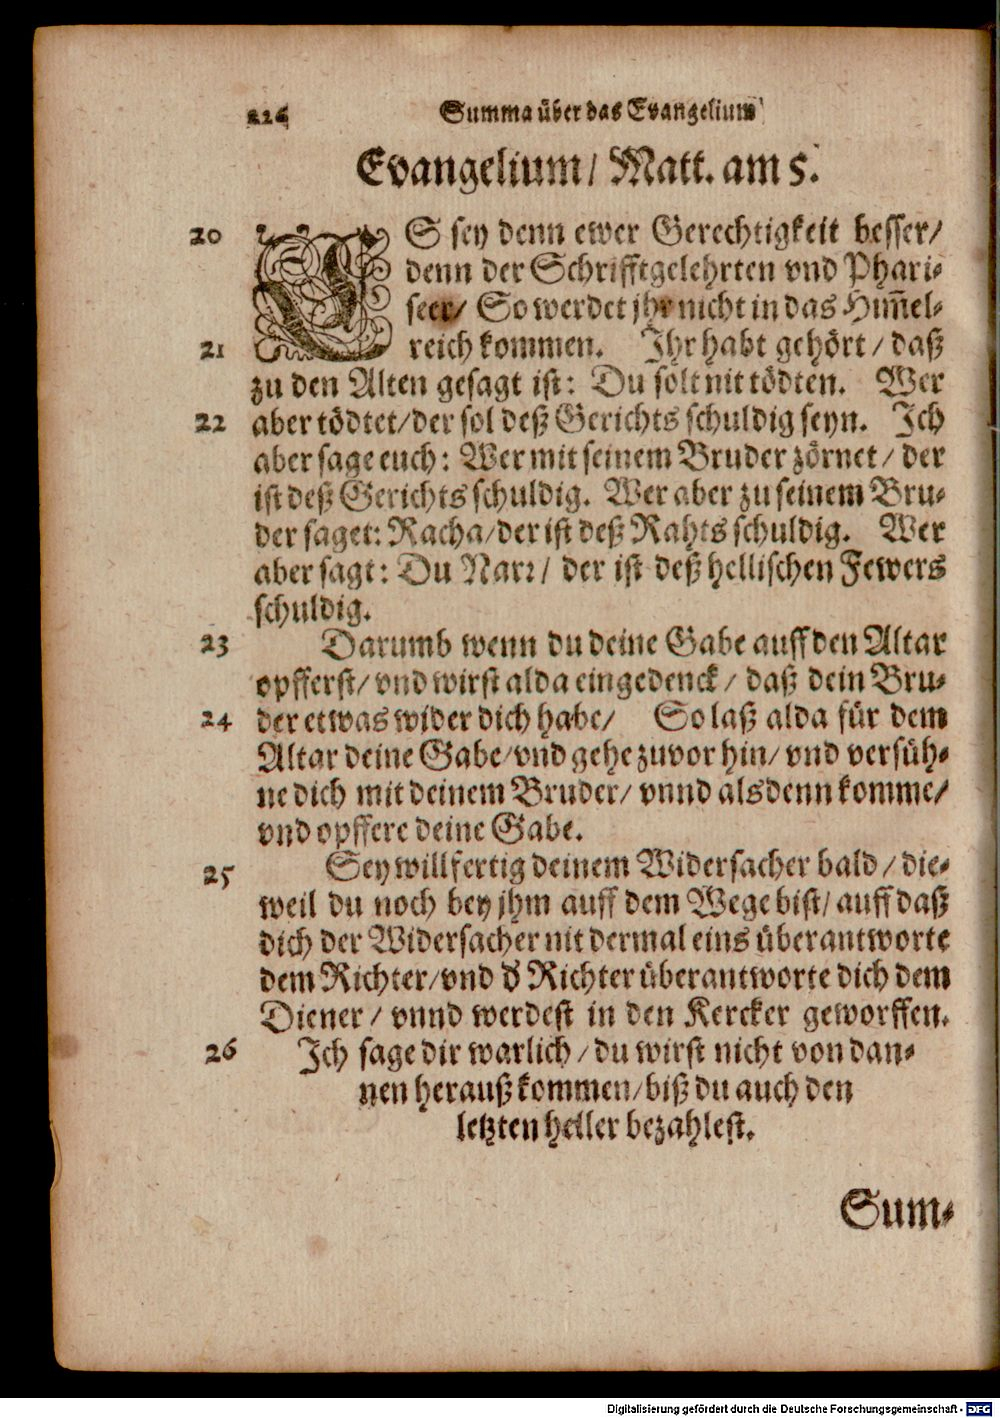 226 Summa über das Evangelium
Evangelium/ Matt. am 5.
20 ES sey denn ewer Gerechtigkeit besser/
denn der Schrifftgelehrten vnd Phari-
seer/ So werdet jhr nicht in das Him̄el-
21 reich kommen. Ihr habt gehört/ daß
zu den Alten gesagt ist: Du solt nit tödten. Wer
22 aber tödtet/ der sol deß Gerichts schuldig seyn. Ich
aber sage euch: Wer mit seinem Bruder zörnet/ der
ist deß Gerichts schuldig. Wer aber zu seinem Bru-
der saget: Racha/ der ist deß Rahts schuldig. Wer
aber sagt: Du Narr/ der ist deß hellischen Fewers
schuldig.
23 Darumb wenn du deine Gabe auff den Altar
opfferst/ vnd wirst alda eingedenck/ daß dein Bru-
24 der etwas wider dich habe/ So laß alda für dem
Altar deine Gabe/ vnd gehe zuvor hin/ vnd versüh-
ne dich mit deinem Bruder/ vnnd alsdenn komme/
vnd opffere deine Gabe.
25 Sey willfertig deinem Widersacher bald/ die-
weil du noch bey jhm auff dem Wege bist/ auff daß
dich der Widersacher nit dermal eins überantworte
dem Richter/ vnd d' Richter überantworte dich dem
Diener/ vnnd werdest in den Kercker geworffen.
26 Ich sage dir warlich/ du wirst nicht von dan-
nen herauß kommen/ biß du auch den
letzten heller bezahlest.
Sum-
Digitalisierung gefördert durch die Deutsche Forschungsgemeinschaft - DFG